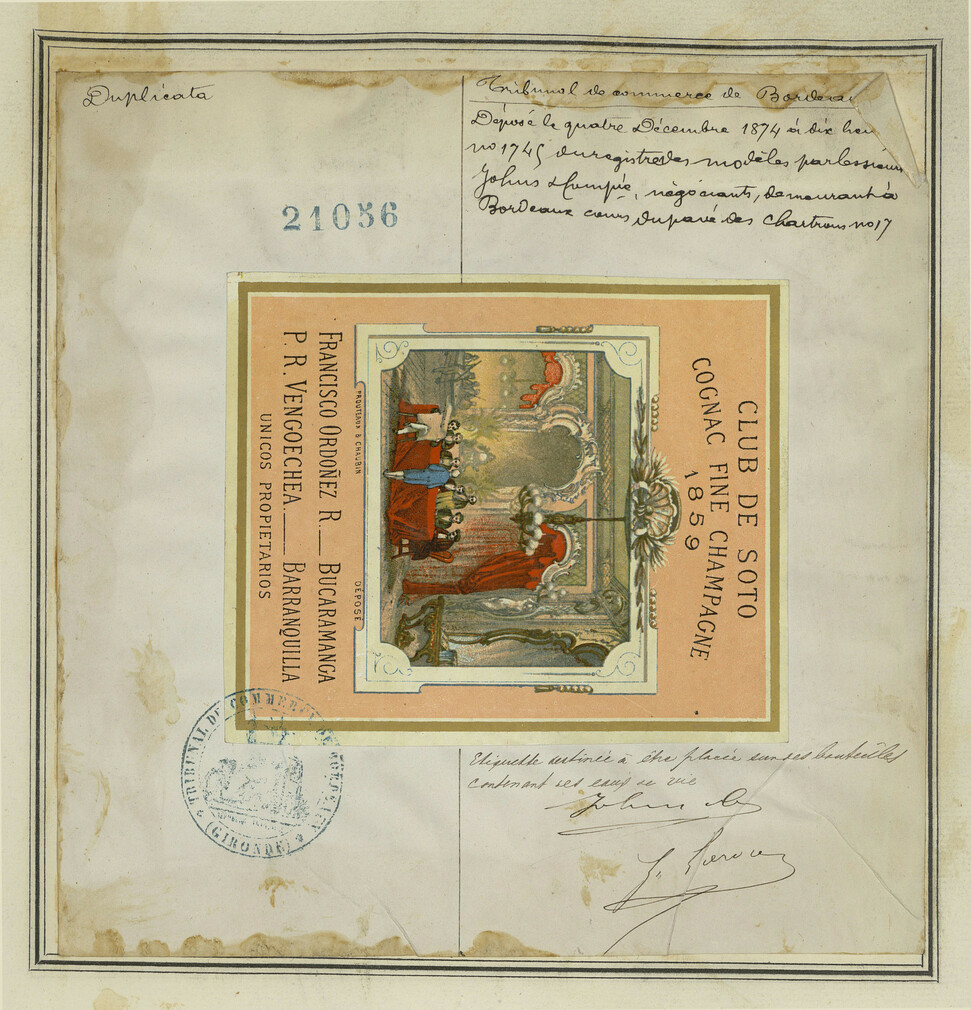 Duplicata
Tribunal de commerce de
Déposé le quatre Décembre 1874 à dix
no 1745 du registre des modèles par les sieurs
Johns & Compie, négociants, demeurant à
Bordeaux cours du pavé des Chartrons no 17
21056
CLUB DE SOTO
COGNAC FINE CHAMPAGNE
1859
PROUTEAUX & CHAUBIN
DÉPOSÉ
FRANCISCO ORDOÑEZ R.— BUCARAMANGA
P. R. VENGOECHEA.— BARRANQUILLA
UNICOS PROPIETARIOS
TRIBUNAL DE COMMERCE DE BORDEAUX
(GIRONDE)
Etiquette destinée à être placée sur des bouteilles
contenant des eaux de vie